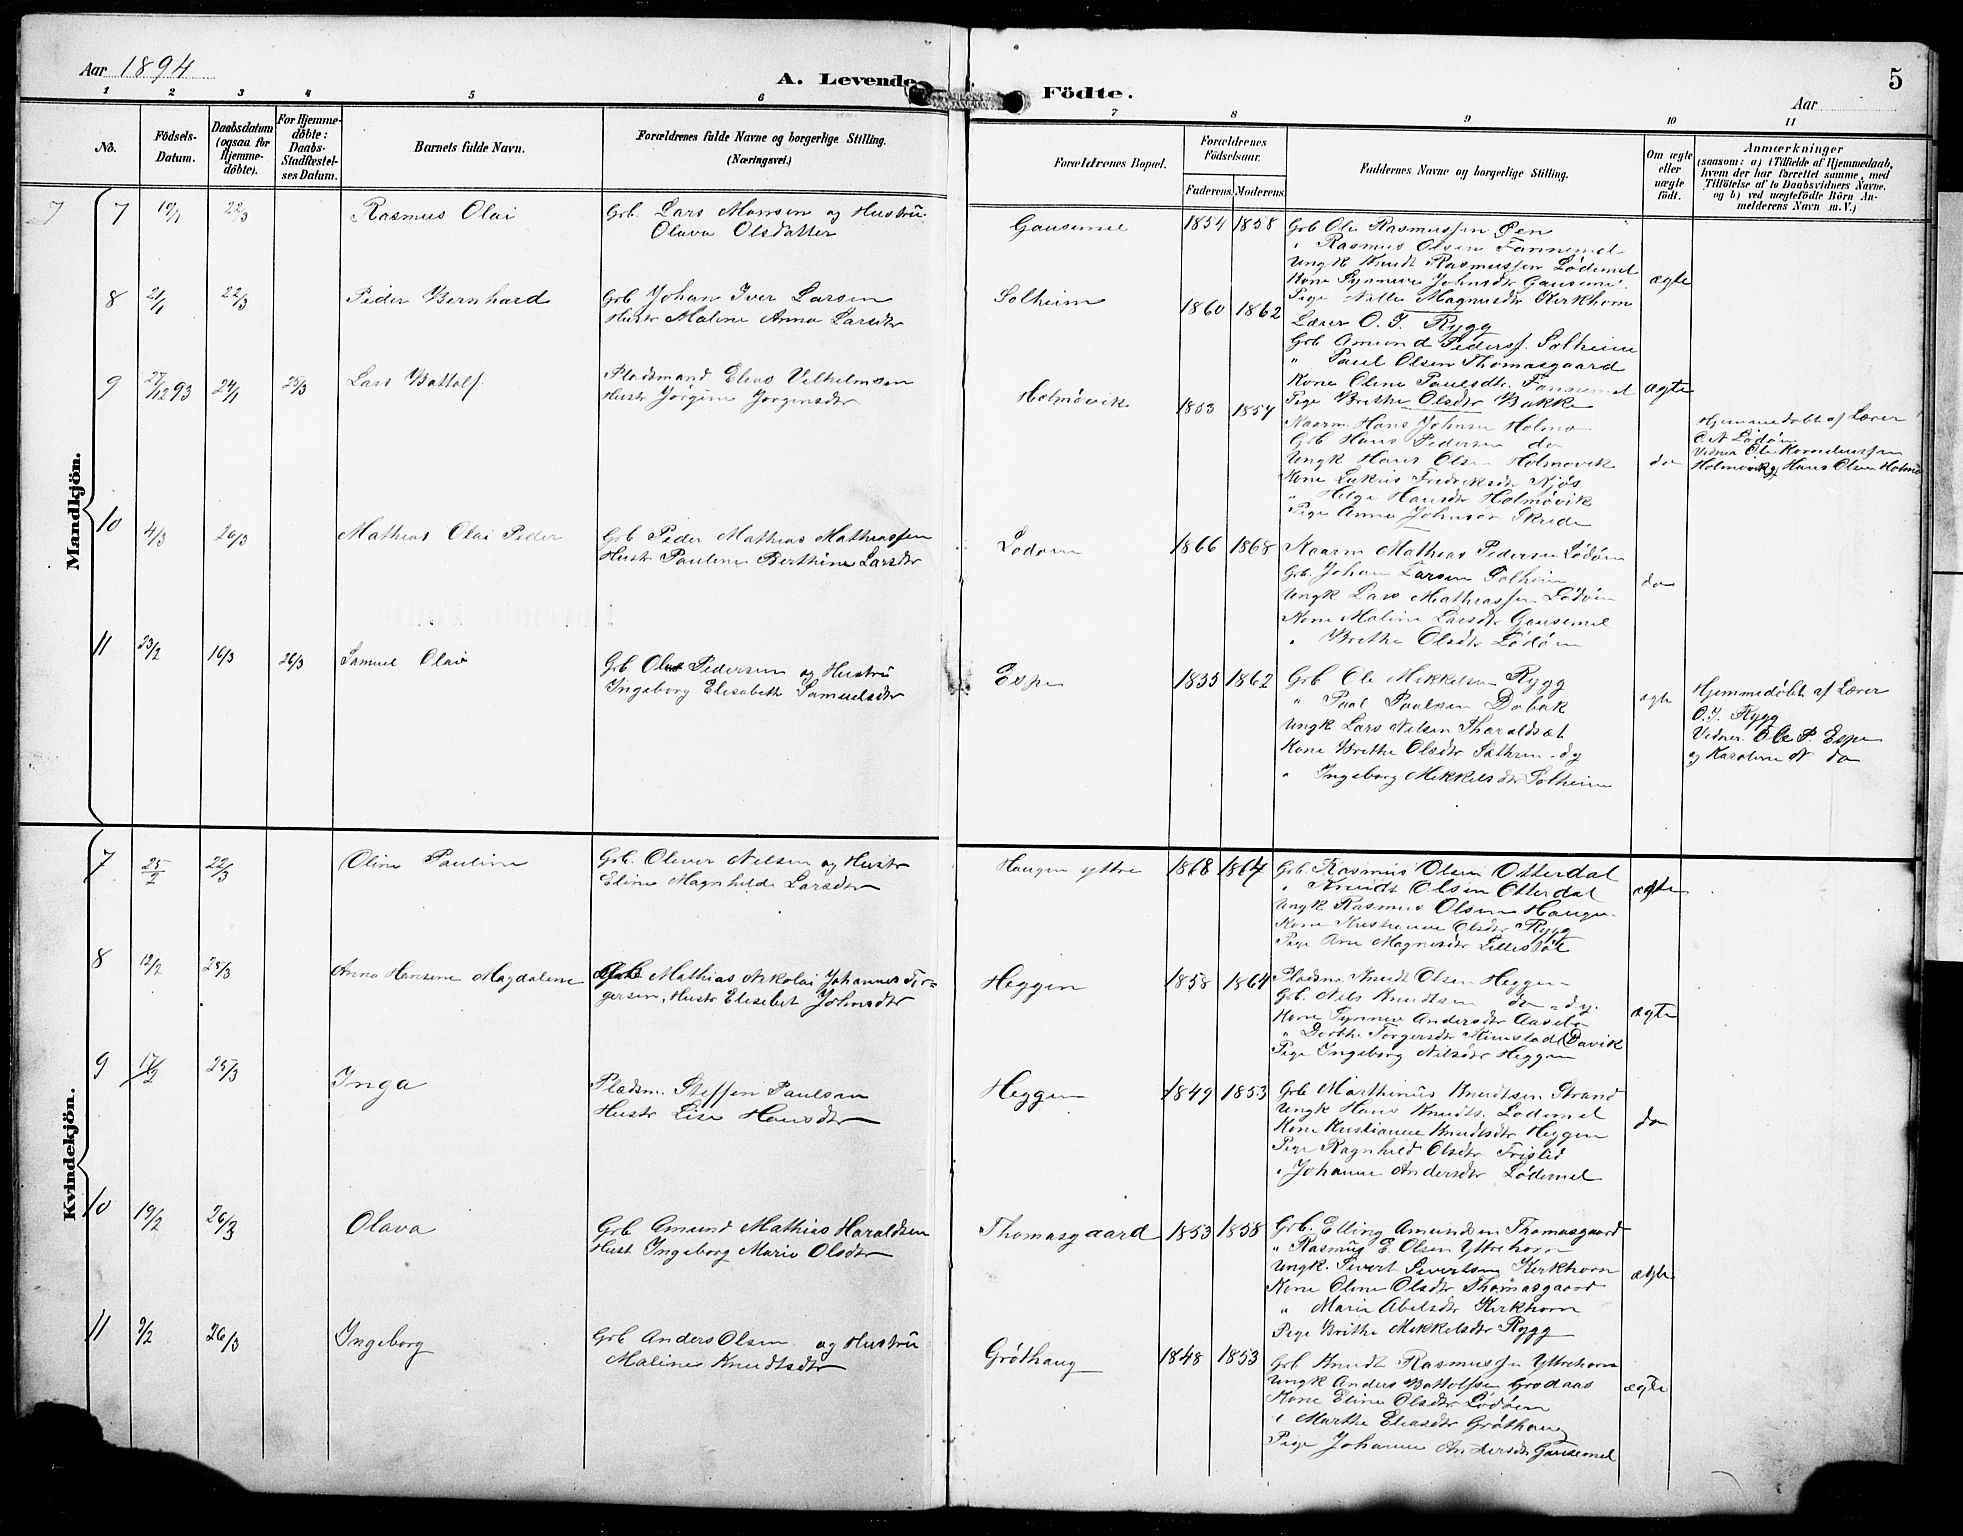 Aar 1894
A. Levende
Födte.
5
Aar
1 2 3 4 5 6 7 8 9 10 11
No.
Födsels-
Datum.
Daabsdatum
(ogsaa for
Hjemme-
döbte).
For Hjemme-
döbte:
Daabs-
Stadfæstel-
ses Datum.
Barnets fulde Navn.
Forældrenes fulde Navne og borgerlige Stilling.
(Næringsvei.)
Forældrenes Bopæl.
Forældrenes
Födselsaar.
Faderens. Moderens.
Faddernes Navne og borgerlige Stilling.
Om ægte
eller
uægte
födt.
Anmærkninger
(saasom: a) i Tilfælde af Hjemmedaab,
hvem der har forrettet samme, med
Tilföielse af to Daabsvidners Navne.
og b) ved uægtefödte Börn An-
melderens Navn m. V.)
Mandkjön.
7 7 19/1 22/3 Rasmus Olai
Grb. Lars Monsen og Hustru
Olava Olsdatter
Gausemel 1854 1858
Grb Ole Rasmussen Øen
" Rasmus Olsen Fannemel
Ungk Knudt Rasmussen Lødemel
Kone Synneve Johnsdr Gausemel
Pige Nille Magnusdr Kirkhorn
ægte
8 21/1 22/3 Peder Bernhard
Grb Johan Iver Larsen
Hustr Maline Anna Larsdr
Solheim 1860 1862
Lærer O. J. Rygg
Grb Amund Peders. Solheim
" Paul Olsen Thomasgaard
Kone Oline Paulsdr. Fannemel
Pige Brithe Olsdr Bakke
ægte
9 27/12 93 24/1 25/3 Lars Bottolf
Pladsmand Elias Vilhelmsen
Hustr Jørgine Jørgensdr
Holmøvik 1853 1854
Kaarm. Hans Johnsen Holmø
Grb Hans Pedersen do
Ungk Hans Olsen Holmøvik
Kone Lukris Fredriksdr Kjøs
" Helge Hansdr Holmøvik
Pige Anna Johnsdr Skude
do
Hjemmedøbt af Lærer
O. A Lødøen
Vidner Ole
Holmøvik og Hans Olsen Holmø
10 4/3 26/3 Mathias Olai Peder
Grb Peder Mathias Mathiassen
Hustr Pauline Berthine Larsdr
Lødøen 1866 1868
Kaarm Mathias Pedersen Lødøen
Grb. Johan Larsen Solheim
Ungk Lars Mathiassen Lødøen
Kone Maline Larsdr Gausemel
" Brithe Olsdr Lødøen
do
11 23/2 16/3 26/3 Samuel Olai
Grb Ole Pedersen og Hustru
Ingeborg Elisabeth Samuelsdr
Espe 1855 1862
Grb Ole Mikkelsen Rygg
" Paul Paulsen Dobak
Ungk Lars Nilsen Tharaldsæt
Kone Brithe Olsdr
" Ingeborg Mikkelsdr Solheim
ægte
Hjemmedøbt af Lærer
O. J. Rygg
Vidner Ole P. Espe
og Karoline N do
Kvindekjön.
7 25/2 22/3 Oline Pauline
Grb. Oliver Nilsen og Hustr
Eline Magnhilde Larsdr
Haugen yttre 1868 1864
Grb. Rasmus Olsen Otterdal
" Knudt Olsen Otterdal
Ungk. Rasmus Olsen Haugen
Kone Kristianne Olsdr Rygg
Pige Ane Magnusdr Lillestøl
ægte
8 12/2 25/3 Anna Hansine Magdalene
Grb Mathias Nikolai Johannes Tor-
gersen, Hustr Elisebet Johnsdr
Heggen 1858 1864
Pladsm. Knudt Olsen Heggen
Grb. Nils Knudtsen do
Kone Synneve Andersdr Aasebø
" Dorthe Torgersdr Rimstad (Davik
Pige Ingeborg Nilsdr Heggen
ægte
9 17/2 25/3 Inga
Pladsm. Steffen Paulsen
Hustr Lise Hansdr
Heggen 1849 1853
Grb Marthinus Knudtsen Strand
Ungk Hans Knudts. Lødemel
Kone Kristianne Knudtsdr Heggen
Pige Ragnhild Olsdr Frislid
" Johanne Andersdr Lødemel
do
10 19/2 26/3 Olava
Grb Amund Mathias Haraldsen
Hust Ingeborg Marie Olsdr
Thomasgaard 1853 1858
Grb. Elling Amundsen Thomasgaard
" Rasmus E. Olsen Yttrehorn
Ungk. Sivert Sivertsen Kirkhorn
Kone Oline Olsdr Thomasgaard
" Marie Abelsdr Kirkhorn
Pige Brithe Mikkelsdr Rygg
ægte
11 9/2 26/3 Ingeborg
Grb Anders Olsen og Hustru
Maline Knudtsdr
Grøthaug 1848 1853
Grb Knudt Rasmussen Yttrehorn
Ungk Anders Bottolfsen Grodaas
Kone Eline Olsdr Lødøen
" Marthe Eliasdr Grøthaug
Pige Johanne Andersdr Gausemel
ægte